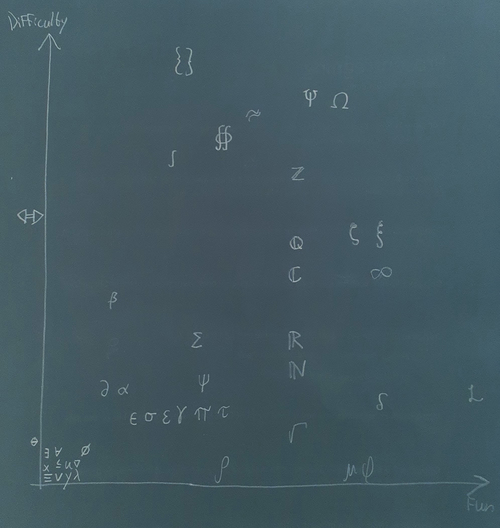 Difficulty
{}
Ψ Ω
≈
∯
∫
ℤ
⇔
ℚ ζ ξ
ℂ ∞
β
Σ ℝ
ℕ
∂ α ψ δ L
ϵ σ ε γ π τ
Γ
θ
∃ ∀ ∅
ρ μ φ
Fun